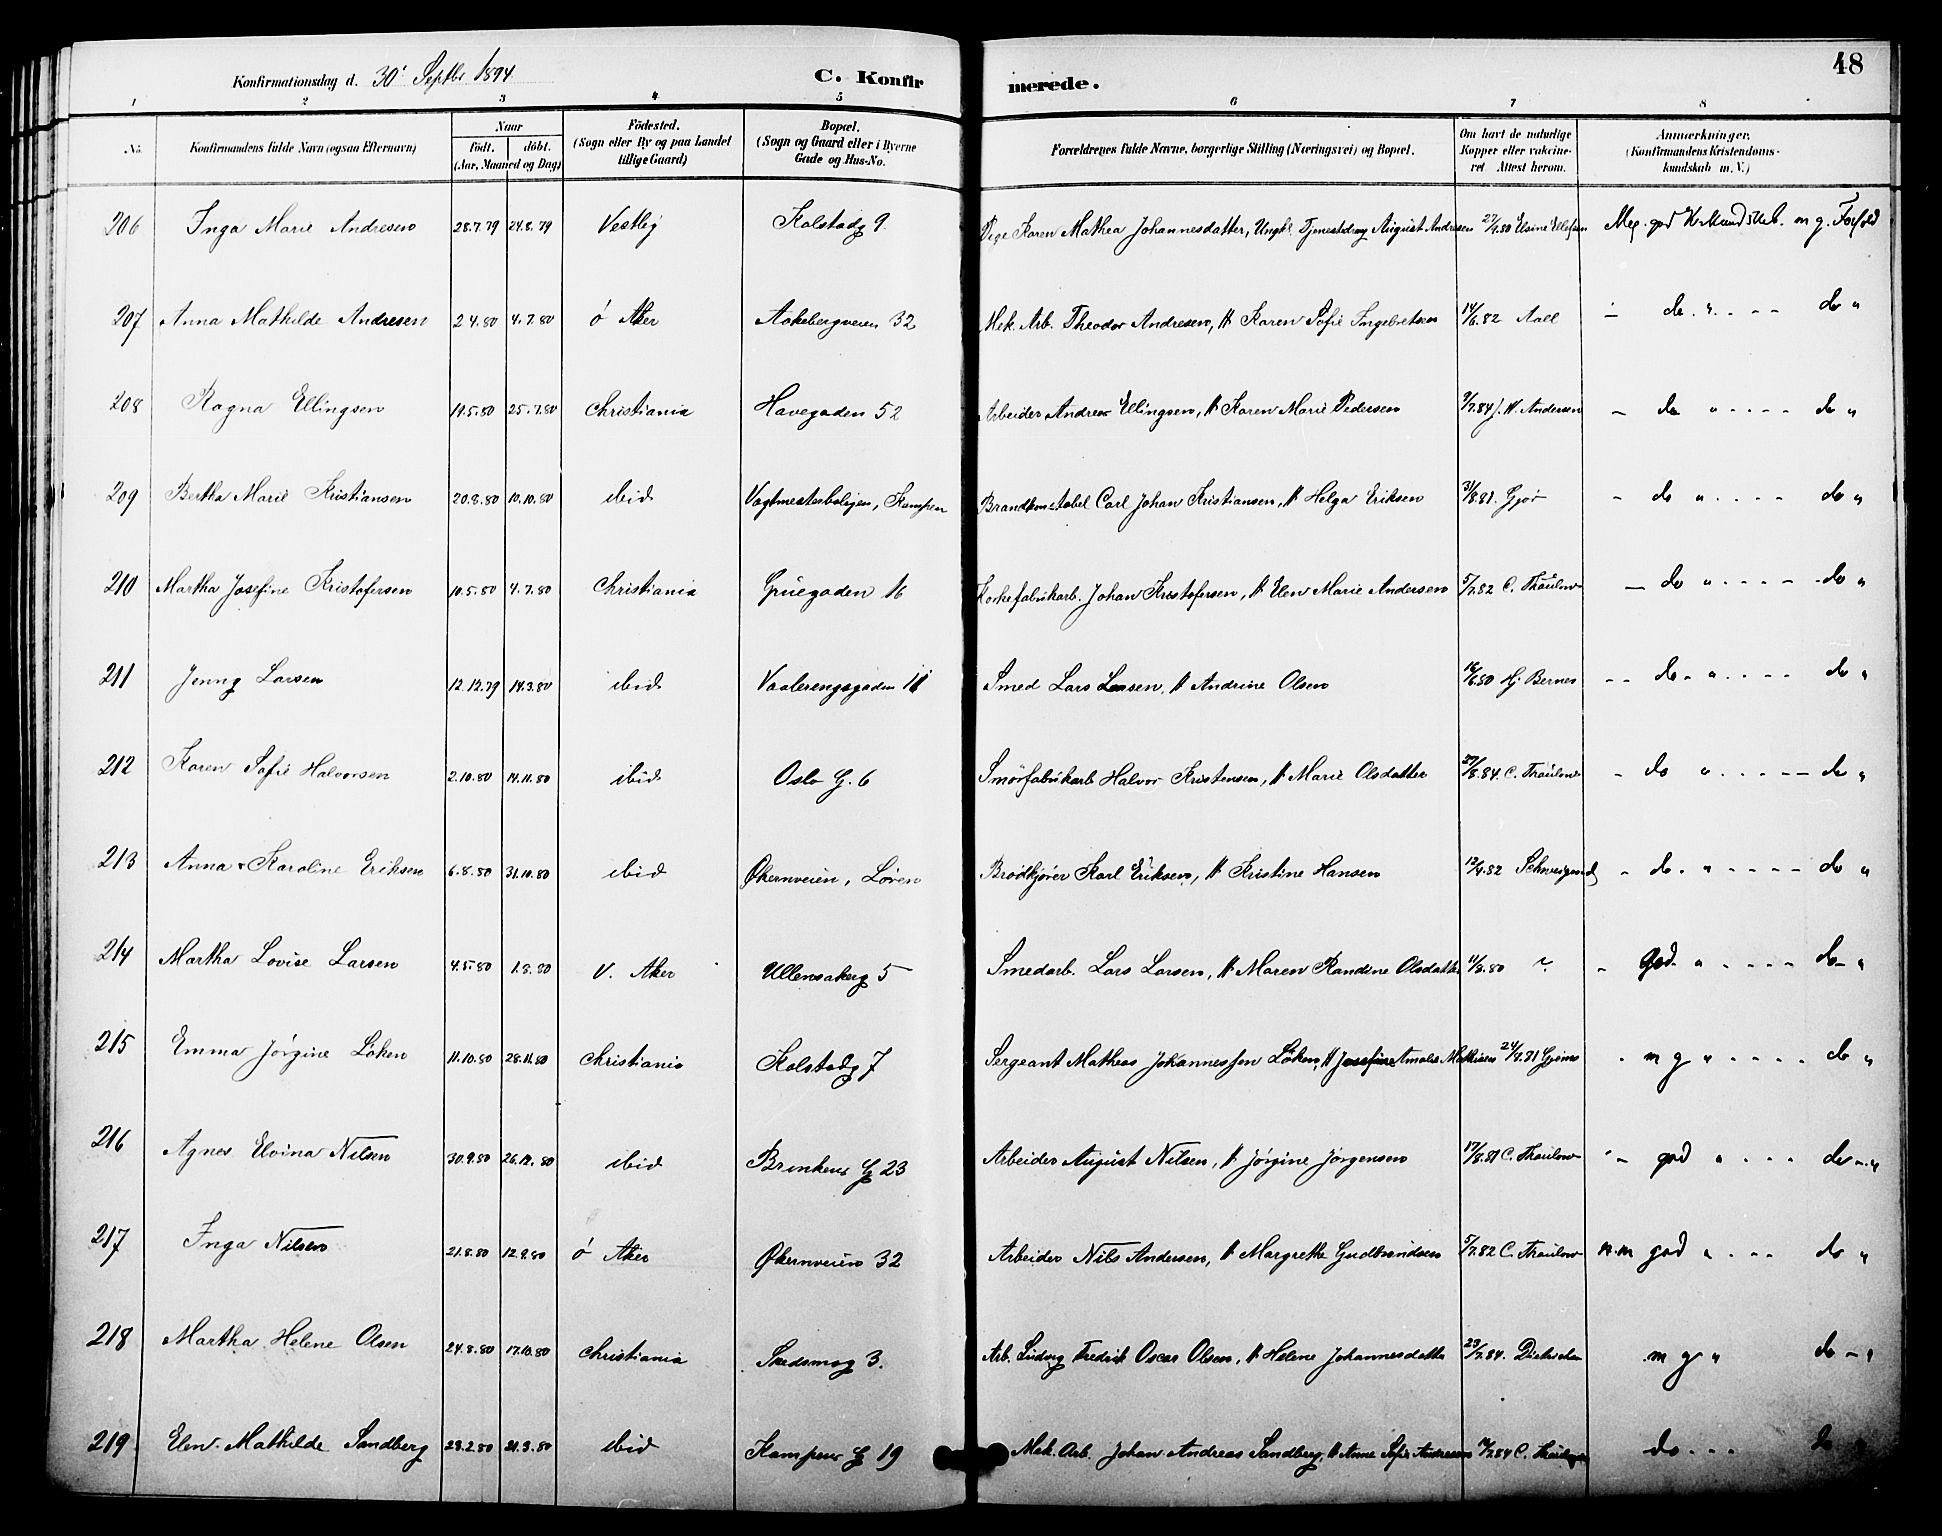 Konfirmationsdag d. 30' Septbr 1894 C. Konfirmerede. 48
1 2 3 4 5 6 7 8
No. Konfirmandens fulde Navn (ogsaa Efternavn) Naar födt. döbt. (Aar, Maaned og Dag) Födested. (Sogn eller By og paa Landet tillige Gaard) Bopæl. (Sogn og Gaard eller i Byerne Gade og Hus-No. Forældrenes fulde Navne, borgerlige Stilling (Næringsvei) og Bopæl. Om havt de naturlige Kopper eller vakcineret Attest herom. Anmærkninger. (Konfirmandens Kristendomskundskab m. V.)
206 Inga Marie Andresen 28.7.79 24.8.79 Vestby Kolstadg 9. Pige Karen Mathea Johannesdatter, Ungk. Tjenestedreng August Andresen 27/4.80 Elsine Ellefsen Meg. god Kundskab. m g. Forhold
207 Anna Mathilde Andresen 2 4.80 4.7.80 Ö Aker Aakebergveien 32 Mek. Arb. Theodor Andresen, H Karen Sofie Ingebretsen 14/6.82 Aall do " do "
208 Ragna Ellingsen 19.5.80 25.7.80 Christiania Havegaden 52 Arbeider Andreas Ellingsen, H Karen Marie Pedersen 9/7.84 J. H. Andersen do " do "
209 Bertha Marie Kristiansen 20.8.80 10.10.80 ibid Vagtmesterboligen, Kampen Brandkonstabel Carl Johan Kristiansen, H Helga Eriksen 31/8.81 Gjör do " do "
210 Martha Josefine Kristofersen 10.5.80 4.7.80 Christiania Grüegaden 16 Korkefabrikarb. Johan Kristofersen, H Elen Marie Andersen 5/7.82 C. Thaulow do " do "
211 Jenny Larsen 12.12.79 14.3.80 ibid Vaalerengsgaden 11 Smed Lars Larsen, H Andrine Olsen 16/6.80 Hj. Bernes do " do "
212 Karen Sofie Halvorsen 2.10.80 14.11.80 ibid Oslo G. 6 Smörfabrikarb Halvor Kristensen, H Marie Olsdatter 27/8.84. C. Thaulow do " do "
213 Anna Karoline Eriksen 6.8.80 31.10.80 ibid Økernveien, Løren Brødkjører Karl Eriksen, H Kristine Hansen 12/4.82 Schweigaard do " do "
214 Martha Lovise Larsen 4.5.80 1.8.80 V. Aker Ullensakerg 5 Smedarb. Lars Larsen, H Maren Randine Olsdatter 11/8.80 god " do "
215 Emma Jørgine Løken 11.10.80 28.11.80 Christiania Kolstadg 7 Sergeant Mathias Johannessen Løken, H Josefine Amalie Mathisen 24/9.81 m g " do "
216 Agnes Elvina Nilsen 30.9.80 26.12.80 ibid Brinkens G 23 Arbeider August Nilsen, H Jørgine Jørgensen 17/8.81 C. Thaulow god " do "
217 Inga Nilsen 21.8.80 12.9.80 Ö Aker Økernveien 32 Arbeider Nils Andersen, H Margrethe Gudbrandsen 5/7.82 C. Thaulow n.m god " do "
218 Martha Helene Olsen 24.8.80 17.10.80 Christiania Skedsmog 3. Arb. Ludvig Fredrik Oscar Olsen, H Helene Johannesdatter 23/7.84. m g " do "
219 Elen Mathilde Sandberg 23.2.80 21.3.80 ibid Kampens G 19 Mek. Arb. Johan Andreas Sandberg, H Anne Sofie Andresen C. Thaulow do do "